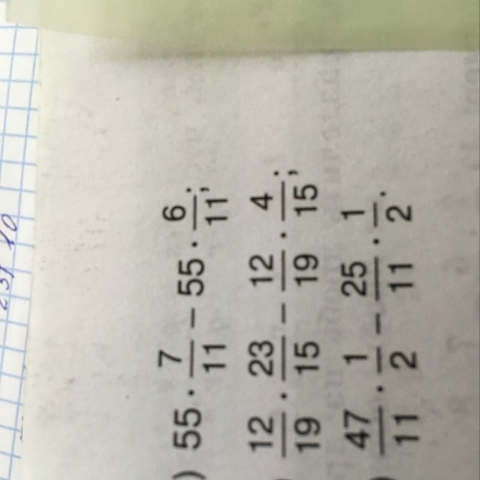 ) 55 · 7/11 − 55 · 6/11;
) 12/19 · 23/15 − 12/19 · 4/15;
) 47/11 · 1/2 − 25/11 · 1/2.